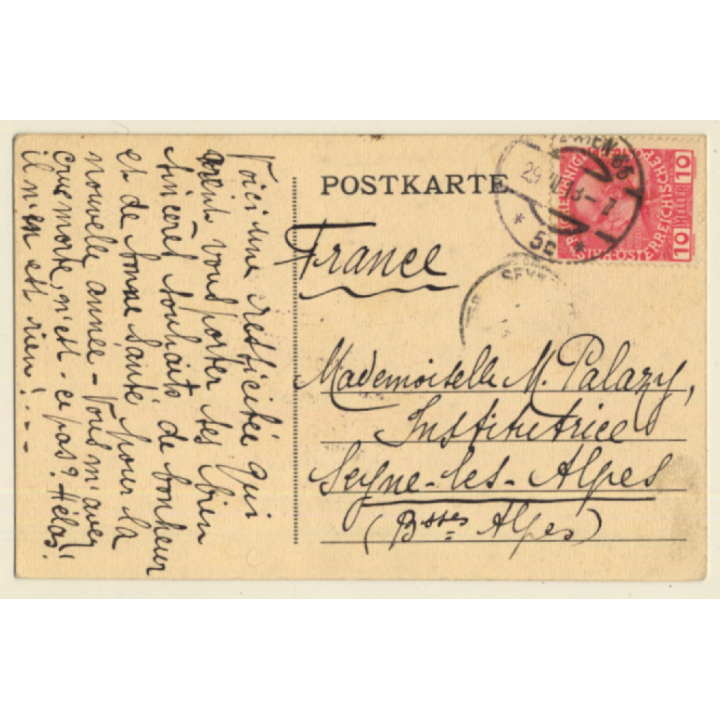 POSTKARTE
France
Mademoiselle M. Palazy,
Institutrice
Seyne-les-Alpes
(Bsses Alpes)
Voici une ressucitée qui
vient vous porter ses bien
sincères souhaits de bonheur
et de bonne santé pour la
nouvelle année - Vous m'avez
crue morte, n'est-ce pas? Hélas!
il n'en est rien! - -
WIEN 66
29
* 5c *
SEYN
10 HELLER 10